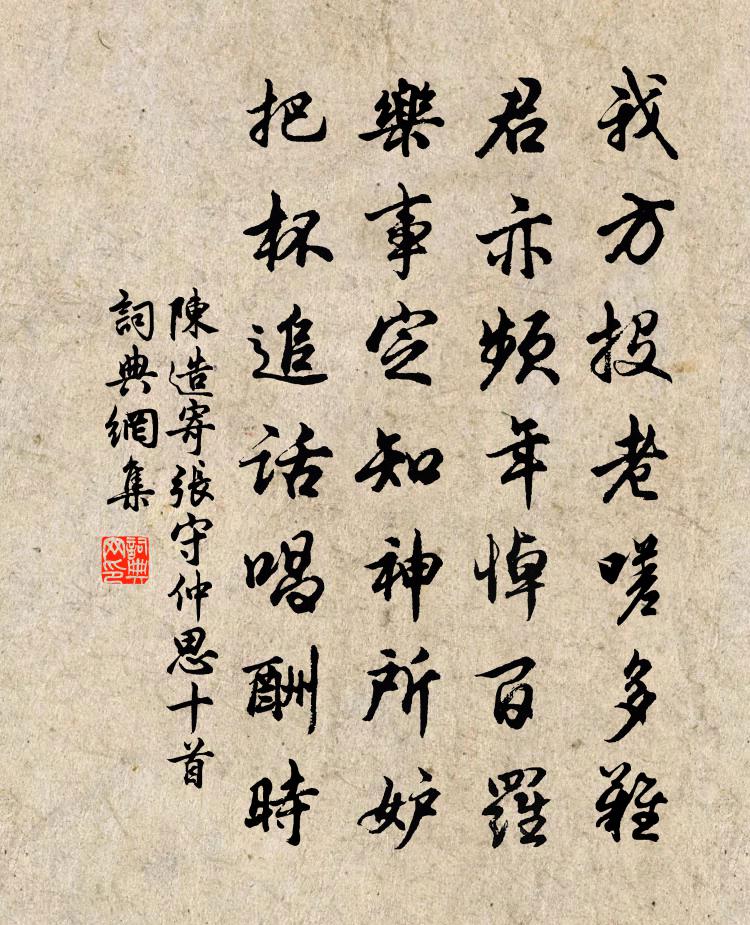 我方投老嗟多難
君亦頻年悼百罹
樂事定知神所妒
把杯追話唱酬時
陳造寄張守仲思十首
詞典網集
詞典
网印